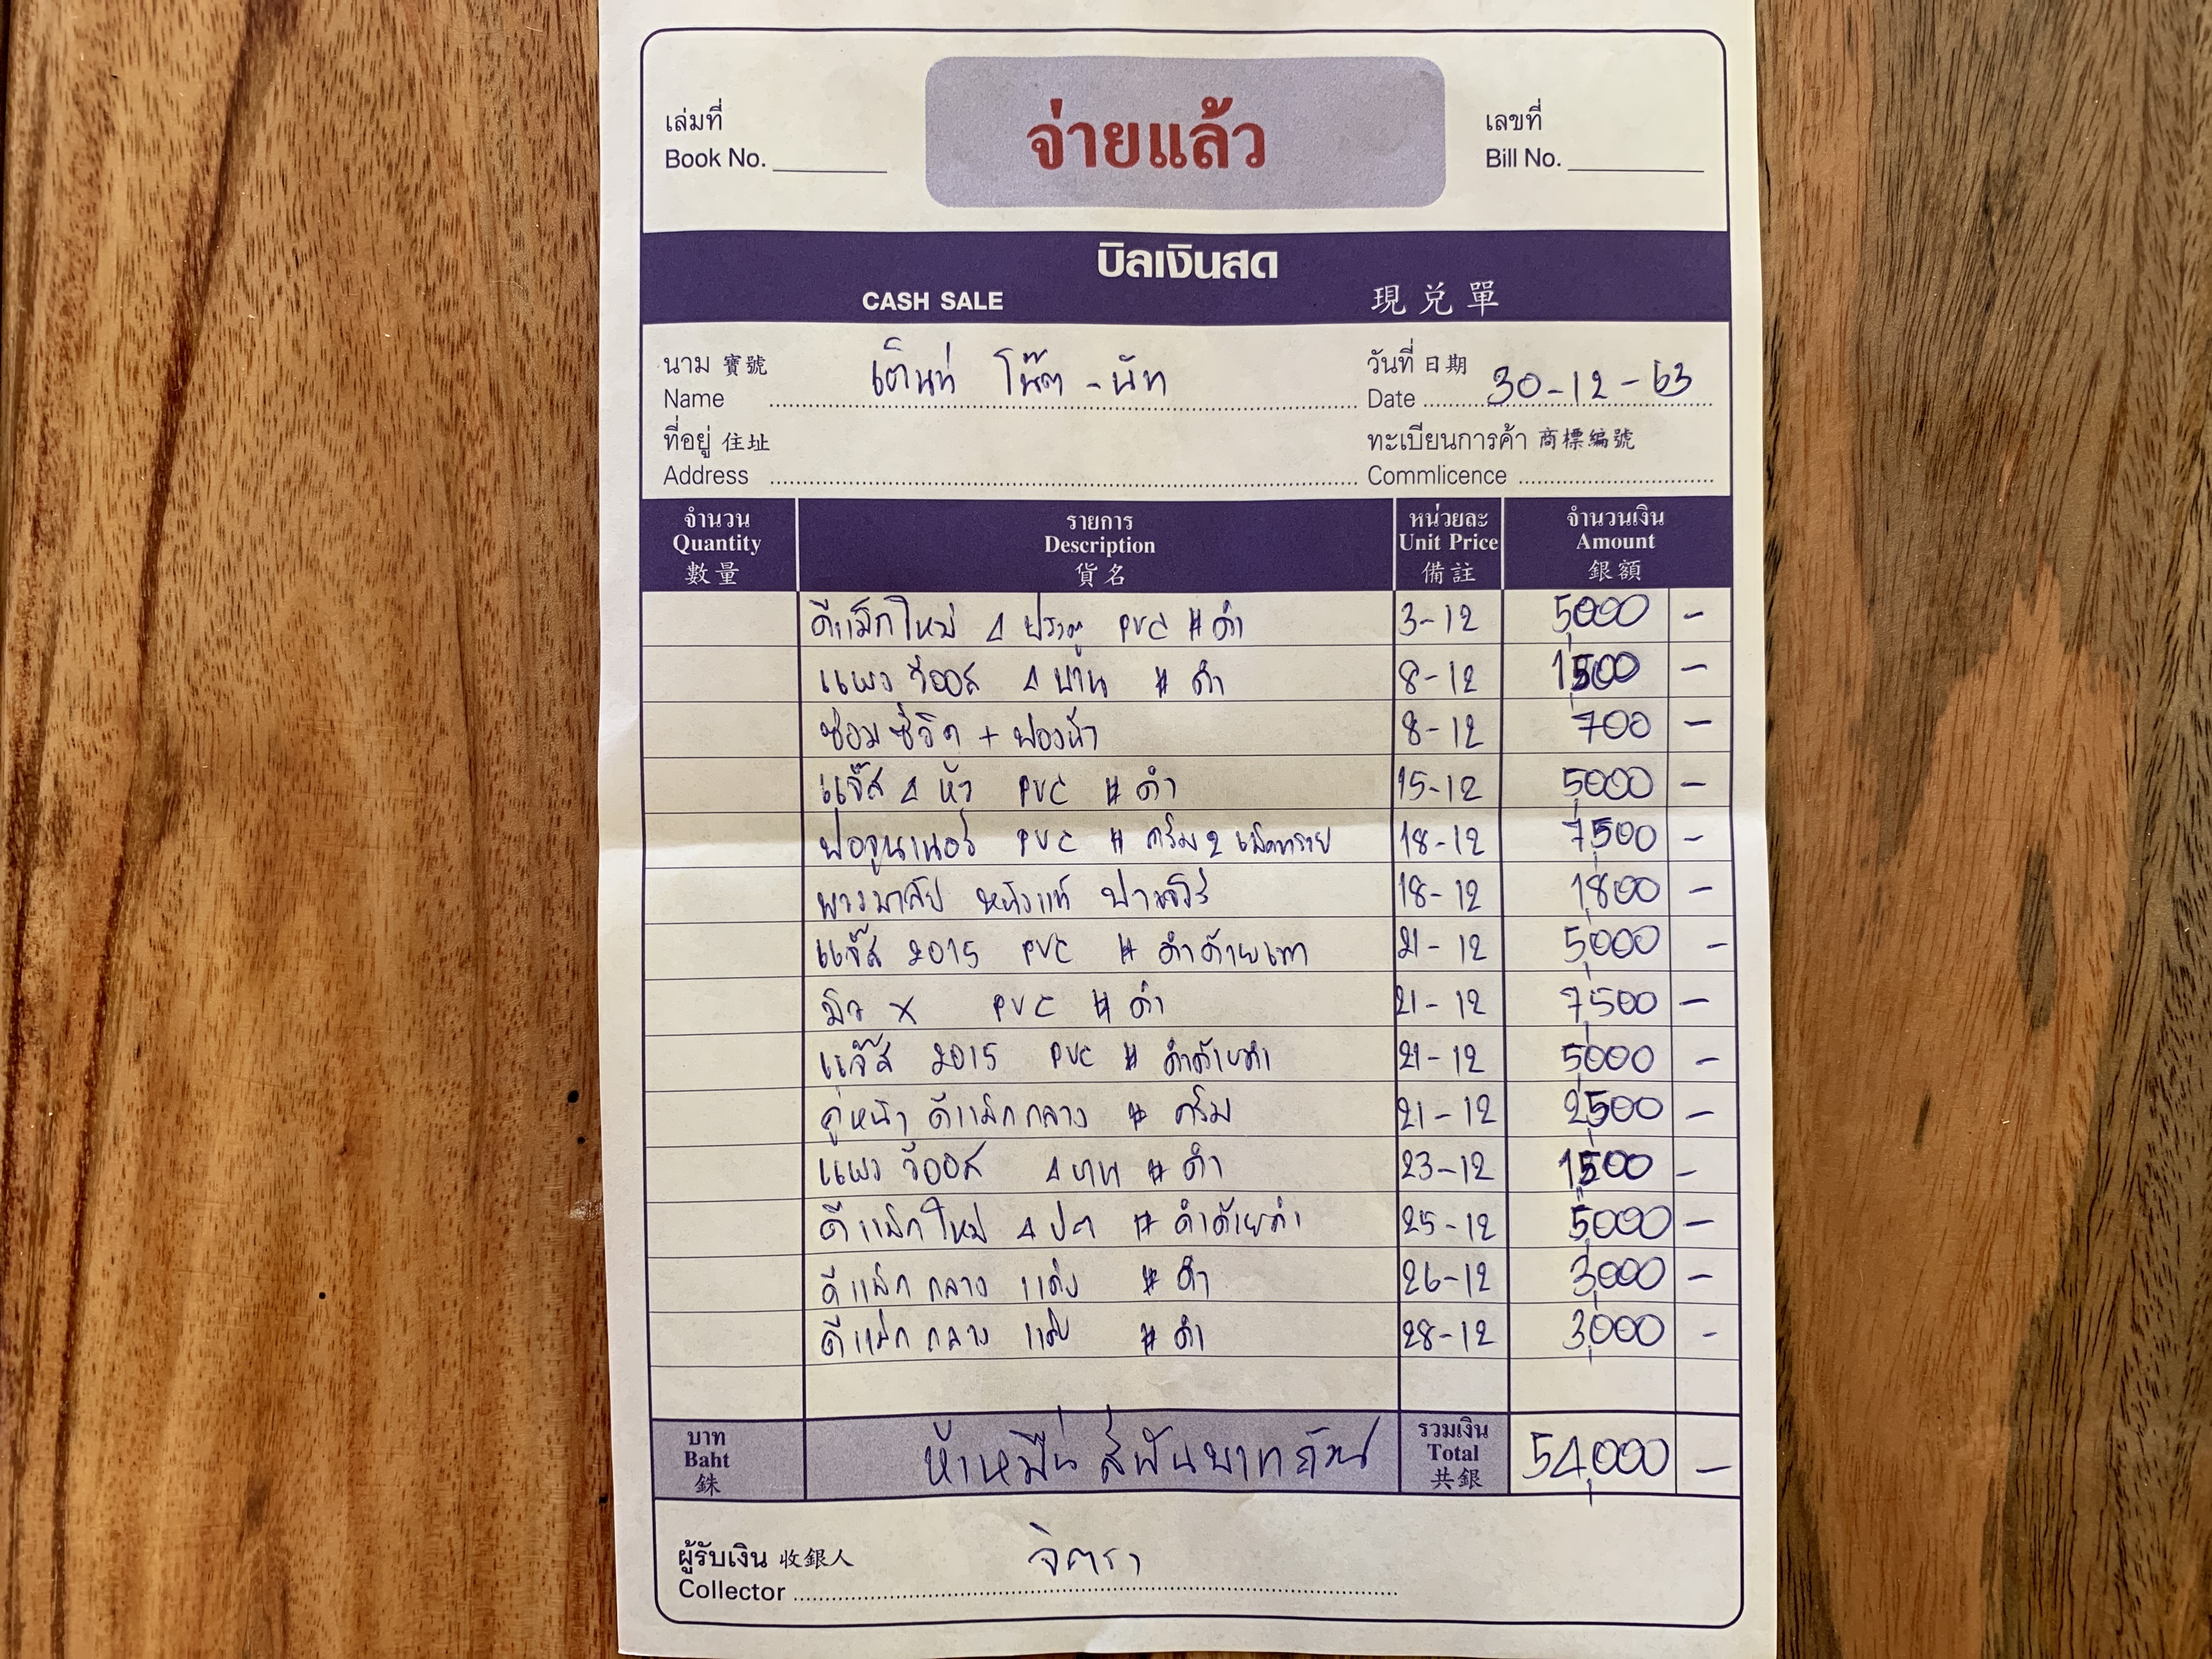 เล่มที่
Book No.
จ่ายแล้ว
เลขที่
Bill No.
บิลเงินสด
CASH SALE 現兌單
นาม 寶號 เต็นท์ โน๊ต - นัท วันที่ 日期 30-12-63
Name Date
ที่อยู่ 住址 ทะเบียนการค้า 商標編號
Address Commlicence
จำนวน รายการ หน่วยละ จำนวนเงิน
Quantity Description Unit Price Amount
數量 貨名 備註 銀額
ดีแม็กใหม่ 4 ประตู PVC # ดำ 3-12 5,000 -
แผง วีออส 4 บาน # ดำ 8-12 1,500 -
ซ่อมซีวิค + ฟองน้ำ 8-12 700 -
แจ๊ส 4 หัว PVC # ดำ 15-12 5,000 -
ฟอจูนเนอร์ PVC # ครีม 2 เม็ดทราย 18-12 7,500 -
พวงมาลัย หนังแท้ 18-12 1,800 -
แจ๊ส 2015 PVC # ดำด้ายเทา 21-12 5,000 -
มิว X PVC # ดำ 21-12 7,500 -
แจ๊ส 2015 PVC # ดำด้ายดำ 21-12 5,000 -
คู่หน้า ดีแม็กกลาง # ครีม 21-12 2,500 -
แผง วีออส 4 บาน # ดำ 23-12 1,500 -
ดีแม็กใหม่ 4 ปต # ดำด้ายดำ 25-12 5,000 -
ดีแม็ก กลาง # ดำ 26-12 3,000 -
ดีแม็ก กลาง # ดำ 28-12 3,000 -
บาท รวมเงิน
Baht ห้าหมื่นสี่พันบาทถ้วน Total 54,000 -
銖 共銀
ผู้รับเงิน 收銀人 จิตรา
Collector